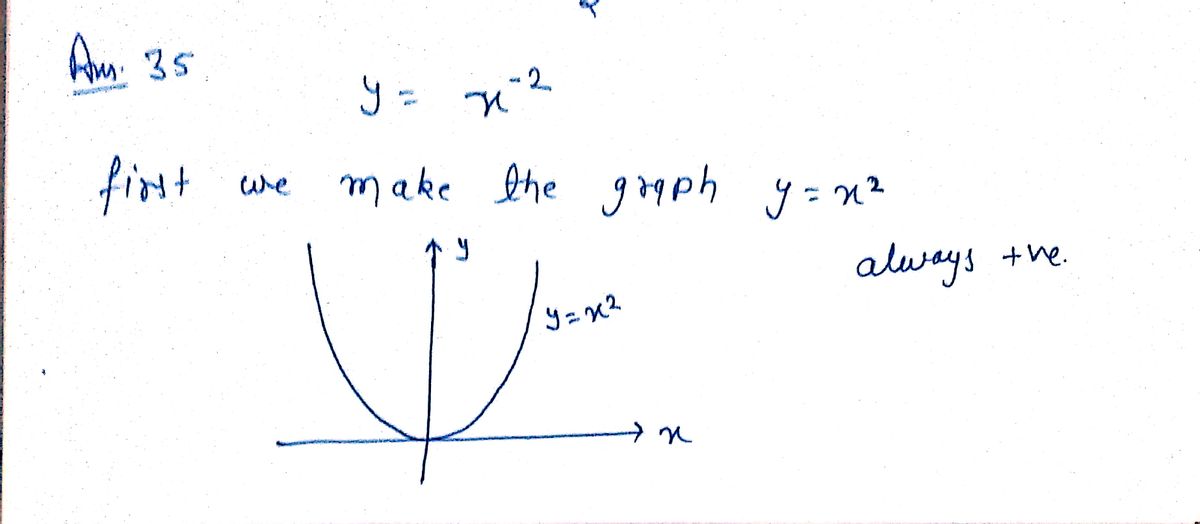 Ans. 35
y = x⁻²
first we make the graph y = x²
always +ve.
y
y = x²
x